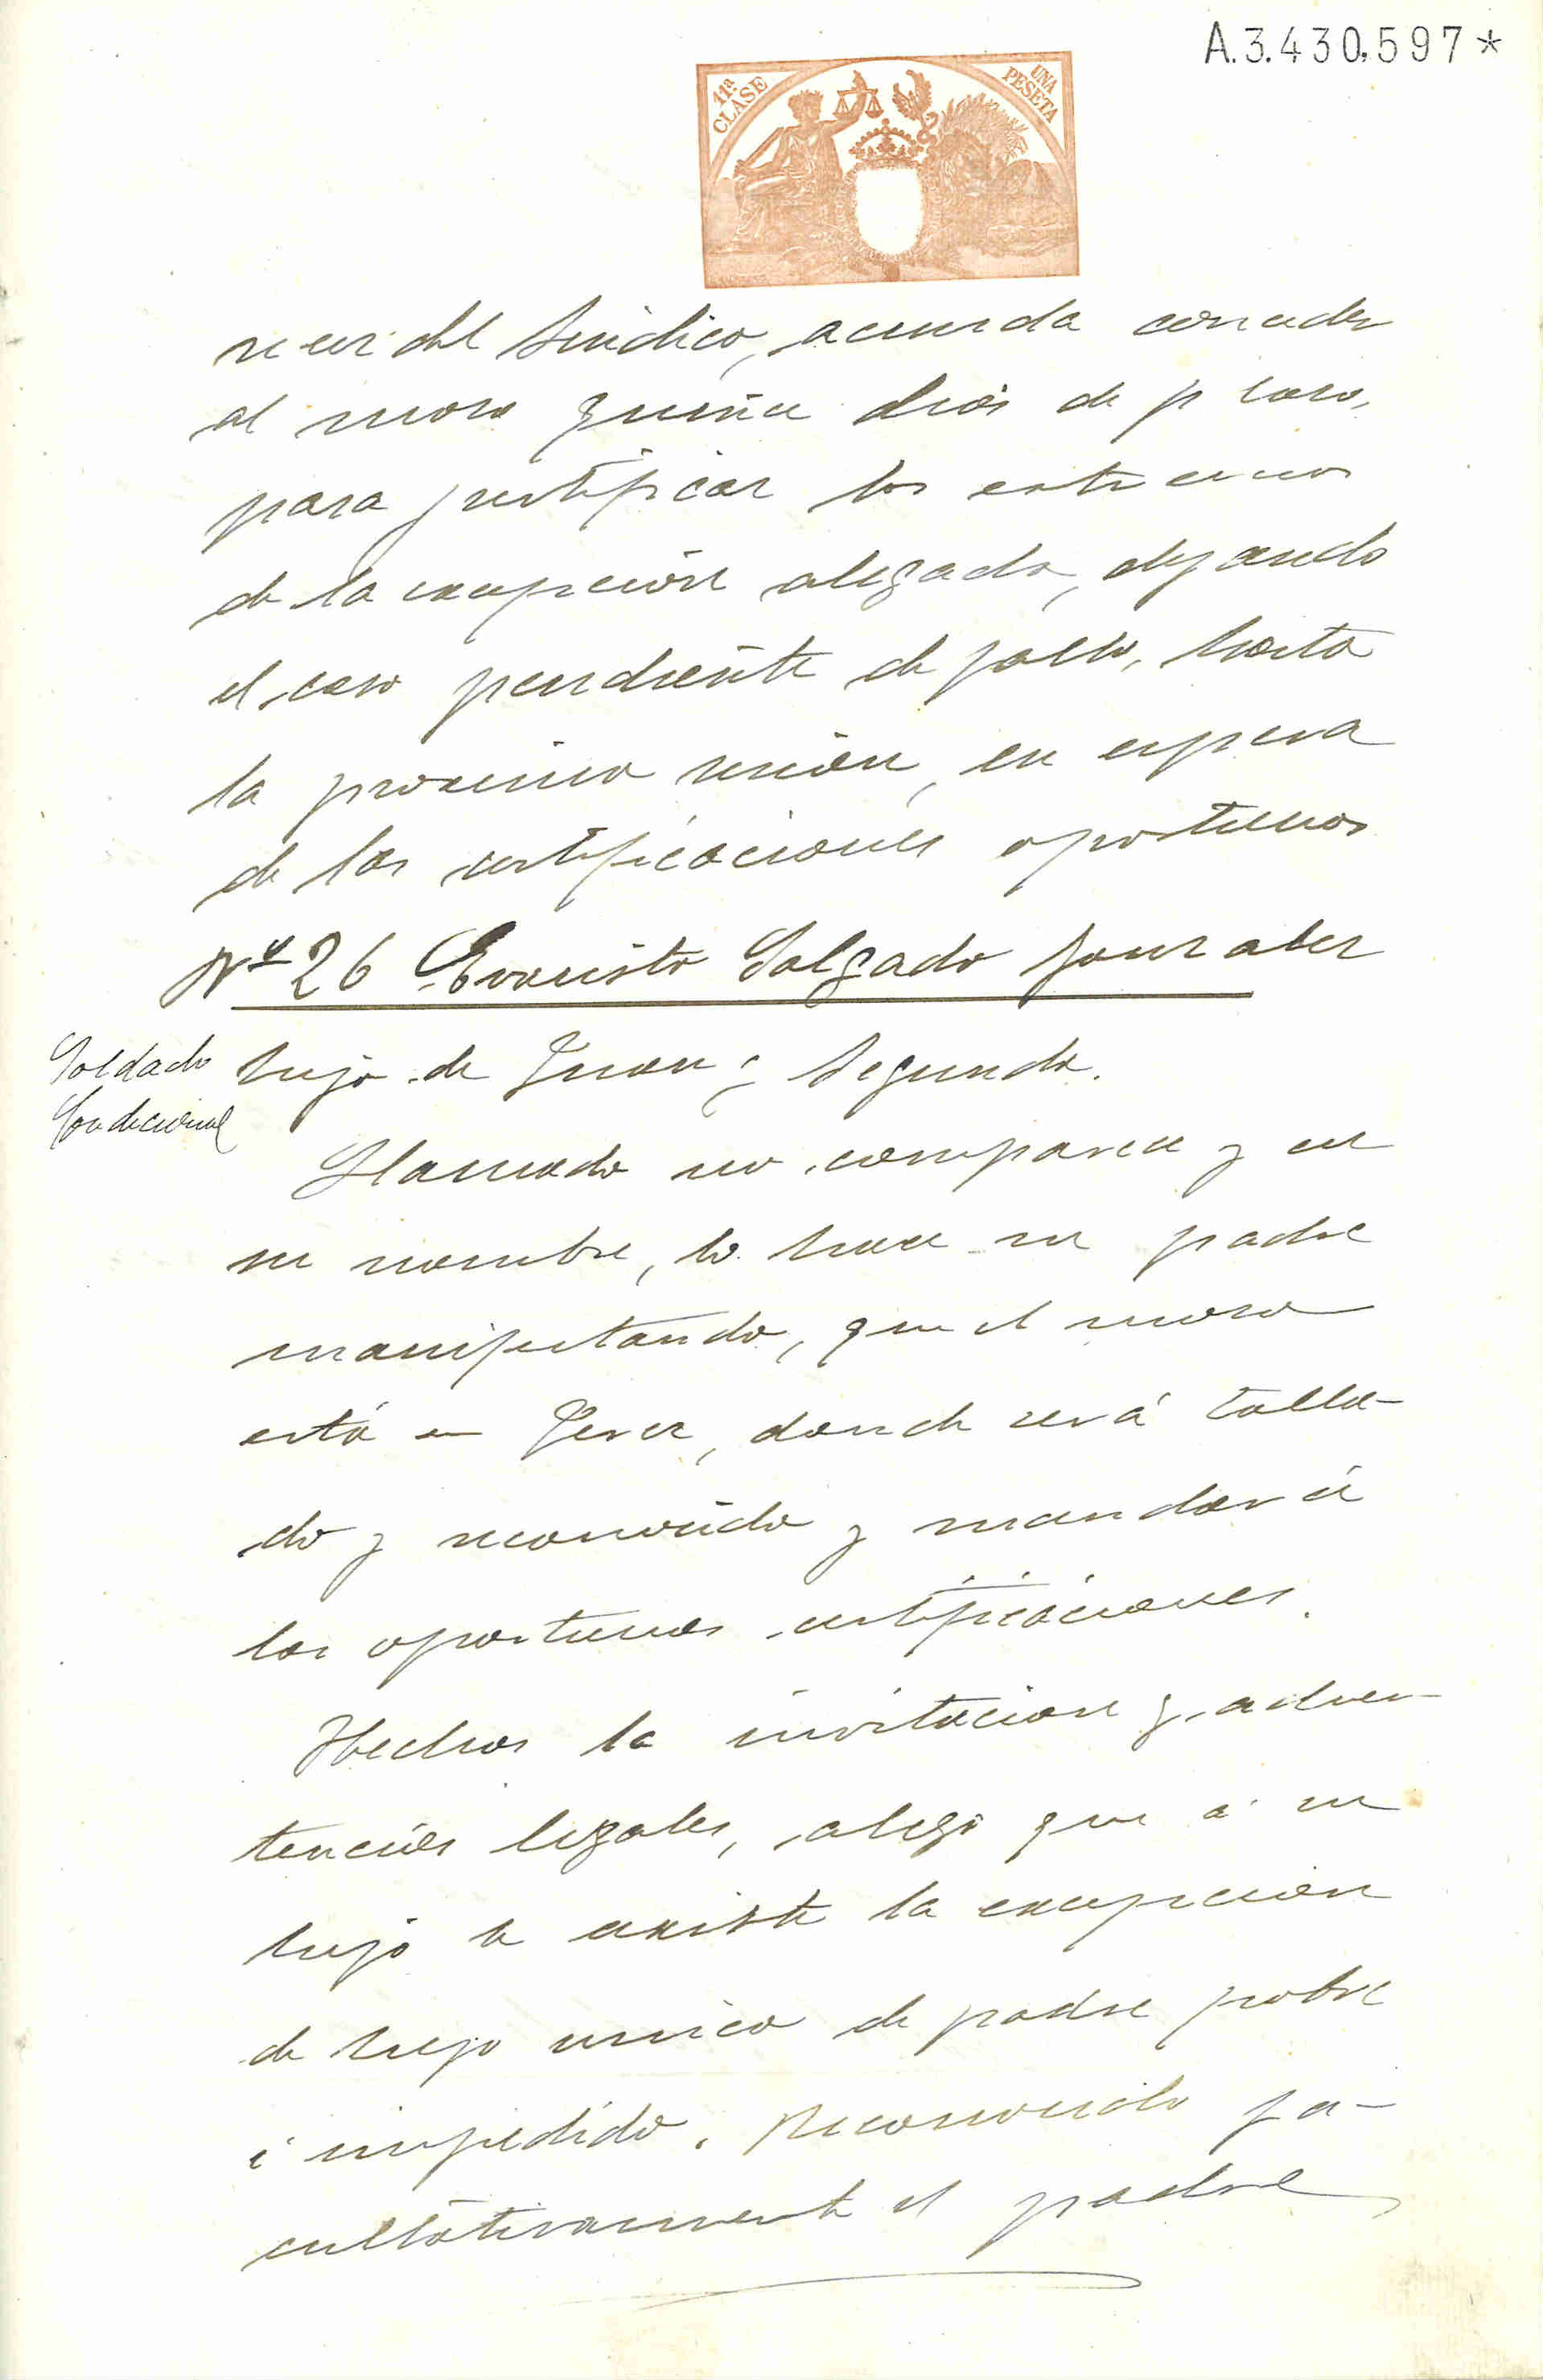 A.3.430.597*
11ª CLASE
UNA PESETA
recer del Sindico, acuerda conceder
al mozo quince dias de plazo,
para justificar los extremos
de la excepción alegada, dejando
el caso pendiente de fallo, hasta
la proxima sesión, en espera
de las certificaciones oportunas
Nº 26 Evaristo Salgado Gonzalez
Soldado
Condicional
hijo de Juan y Segunda.
Llamado no comparece y en
su nombre, lo hace su padre
manifestando, que el mozo
está en Jerez, donde será talla-
do y reconocido y mandará
las oportunas certificaciones.
Hechas la invitación y adver-
tencias legales, alegó que á su
hijo le existe la excepción
de hijo unico de padre pobre
é impedido. Reconocido fa-
cultativamente el padre